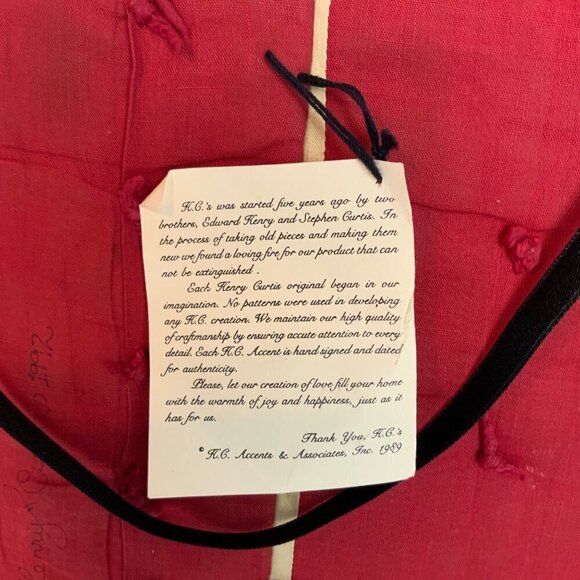 H.C.'s was started five years ago by two
brothers, Edward Henry and Stephen Curtis. In
the process of taking old pieces and making them
new we found a loving fire for our product that can
not be extinguished .
Each Henry Curtis original began in our
imagination. No patterns were used in developing
any H.C. creation. We maintain our high quality
of craftmanship by ensuring accute attention to every
detail. Each H.C. Accent is hand signed and dated
for authenticity.
Please, let our creation of love fill your home
with the warmth of joy and happiness, just as it
has for us.
Thank You, H.C.'s
© H.C. Accents & Associates, Inc. 1989
Henry 1992